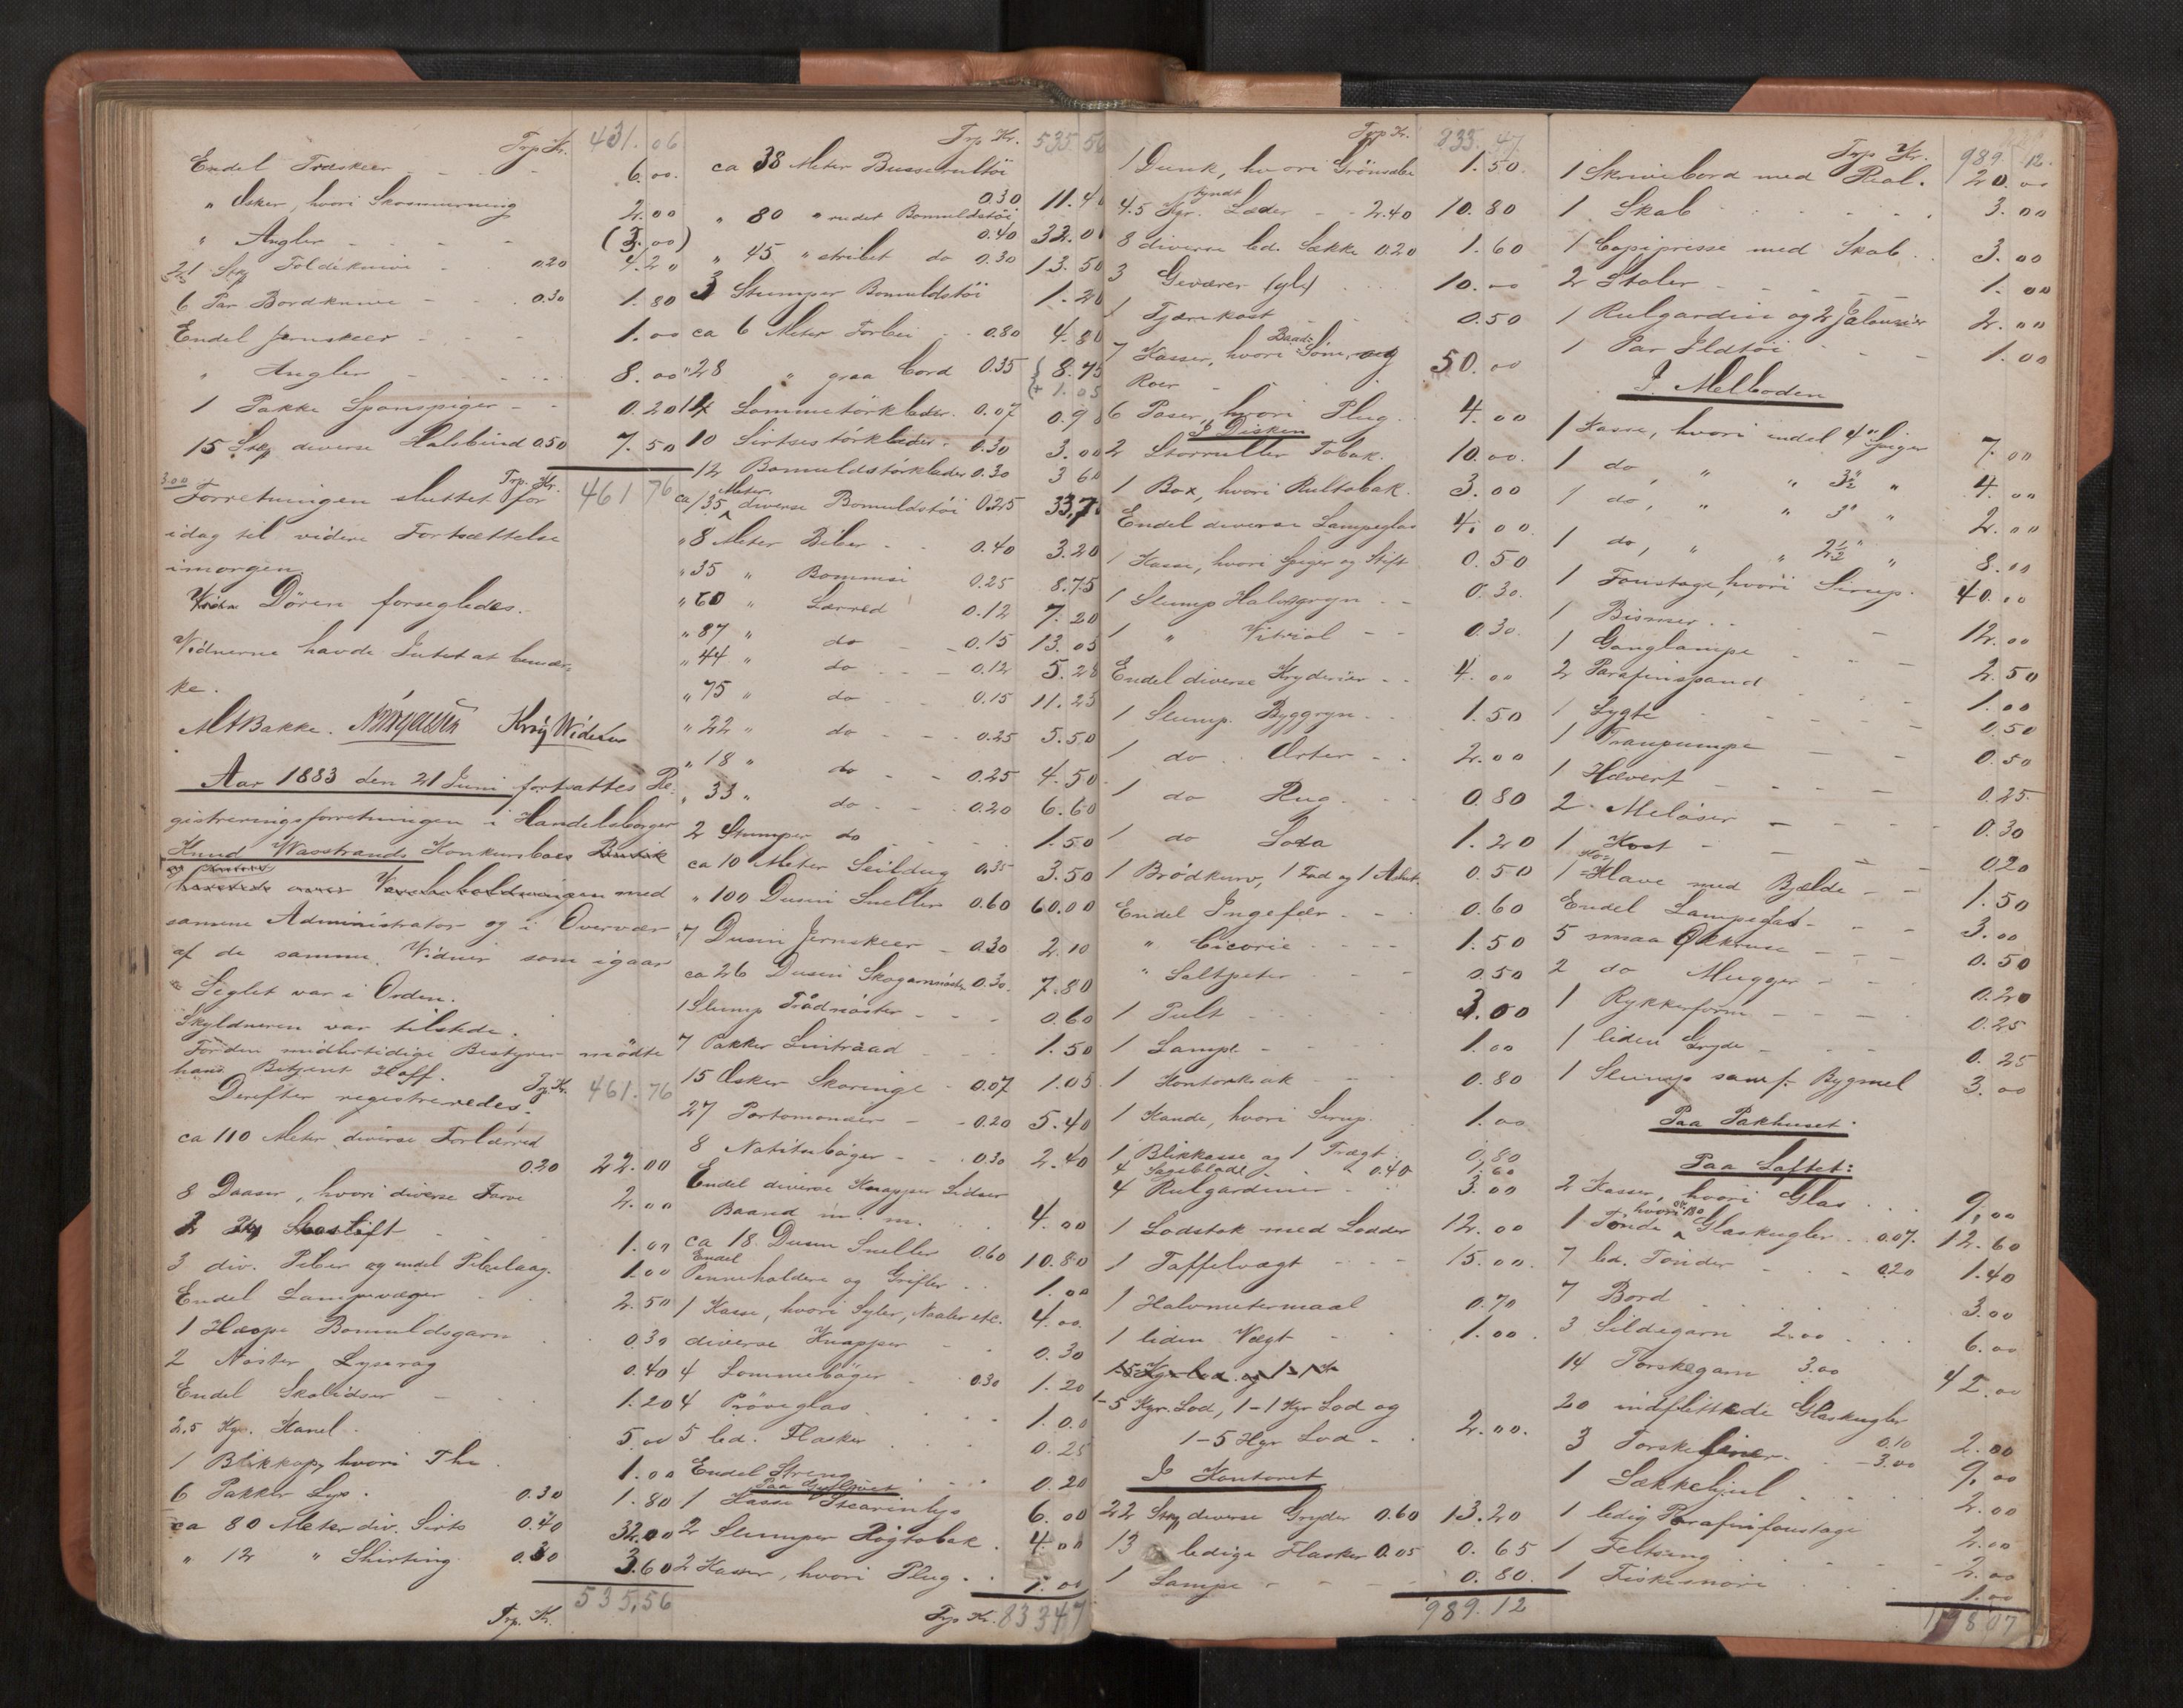 Trp Kr. 431.06
Endel Træskeer 6.00.
" Æsker, hvori Skosmurning 2.00
" Angler (3.00)
21 Stk Foldeknive 0.20 4.20
6 Par Bordknive 0.30 1.80
Endel Jernskeer 1.00
" Angler 8.00
1 Pakke Spanspiger 0.20
15 Stk diverse Halsbind 0.50 7.50
Trp. Kr. 461 76
Forretningen sluttet for
idag til videre Fortsættelse
imorgen.
Døren forsegledes.
Vidnerne havde Intet at bemær-
ke.
Aar 1883 den 21 Juni fortsattes Re-
gistreringsforretningen i Handelsborger
Knud Wasstrands Konkursboes
med
samme Administrator og i Overvær
af de samme Vidner som igaar
Seglet var i Orden.
Skyldneren var tilstede.
For den midlertidige Bestyrer mødte
hans Betjent Hoff.
Derefter registreredes: Trp. Kr. 461.76
ca 110 Meter diverse Forlærred
0.20 22.00
8 Daaser, hvori diverse Farve 2.00
Skostift 1.00
3 div. Piber og endel Pibelaag. 1.00
Endel Lampevæger 2.50
1 Haspe Bomuldsgarn 0.30
2 Nøster Lysevæg 0.40
Endel Skolidser 1.20
2,5 Kgr. Kanel 5.00
1 Blikkop, hvori The 1.00
6 Pakker Lys. 0.30 1.80
ca 80 Meter div. Sirts 0.40 32.00
" 12 " Shirting 0.30 3.60
Trp. Kr. 535,56
Trp Kr. 535.56
ca 38 Meter Busserultøi
0.30 11.40
" 80 " rudet Bomuldstøi
0.40 32.00
" 45 " stribet do 0.30 13.50
3 Stumper Bomuldstøi 1.20
ca 6 Meter Forbei 0.80 4.80
" 28 " graa Cord 0.35 8.75
+ 1.05
14 Lommetørklæder. 0.07 0.98
10 Sirtsestørklæder 0.30 3.00
12 Bomuldstørklæder 0.30 3 60
ca 135 Meter diverse Bomuldstøi 0.25 33,75
" 8 Meter Biber 0.40 3.20
" 35 " Bommesi 0.25 8.75
" 60 " Lærred 0.12 7.20
" 87 " do 0.15 13.05
" 44 " do 0.12 5.28
" 75 " do 0.15 11.25
" 22 " do 0.25 5.50
" 18 " do 0.25 4.50
" 33 " do 0.20 6.60
2 Stumper do 1.50
ca 10 Meter Seildug 0.35 3.50
" 100 Dusin Sneller 0.60 60.00
7 Dusin Jernskeer 0.30 2.10
ca 26 Dusin Skogarnnøster 0.30. 7.80
1 Slump Trådnøster 0.60
7 Pakker Lintraad 1.50
15 Æsker Skoringe 0.07 1.05
27 Portomonnæer 0.20 5.40
8 Notitsbøger 0.30 2.40
Endel diverse Knapper Lidser
Baand m. m. 4.00
ca 18 Dusin Sneller 0.60 10.80
Endel Penneholdere og Grifler 1.00
1 Kasse, hvori Syler, Naaler etc. 4.00
diverse Knapper 0.30
4 Lommebøger 0.30 1.20
4 Prøveglas 1.00
5 led. Flasker 0.25
Endel Streng 0.20
Paa Gulvet
1 Kasse Stearinlys 6.00
2 Slumper Røgtobak 4.00
2 Kasser, hvori Plug 1.00
Trp Kr. 833 47
Trp Kr. 833.47
1 Dunk, hvori Grønsæbe 1.50.
4.5 Kgr. tyndt Læder 2.40 10.80
8 diverse led. Sække 0.20 1.60
3 Geværer (gl.) 10.00
1 Tjærekost 0.50
7 Kasser, hvori Baad-Søm, og
Roer 50.00
6 Poser, hvori Plug 4.00
I Disken
2 Storruller Tobak. 10.00.
1 Box, hvori Rultobak 3.00
Endel diverse Lampeglas 4.00.
1 Kasse, hvori Spiger og Stift 0.50
1 Slump Halvgryn 0.30.
1 " Vitriol 0.30.
Endel diverse Kryderier 4.00
1 Slump. Byggryn 1.50
1 do Erter 2.00
1 do Rug 0.80
1 do Soda 1.20
1 Brødkurv, 1 Fad og 1 Asket 0.50
Endel Ingefær 0.60
" Cicorie 1.50
" Saltpeter 0.50
1 Pult 3.00
1 Lampe 1.00
1 Kontorkrak 0.80
1 Kande, hvori Sirup. 1.00
1 Blikkasse og 1 Tragt 0,80
4 Sageblade 0.40 1.60
4 Rulgardiner 3.00
1 Lodstok med Lodder 12.00
1 Taffelvægt 15.00.
1 Halvmetermaal 0.70
1 liden Vægt 1.00
1-5 Kgr. Lod, 1-1 Kgr Lod og
1-5 Hgr Lod 2.00.
I Kontoret
22 Stk diverse Gryder 0.60 13.20
13 ledige Flasker 0.05 0.65
1 Lampe 0.80.
989.12
Trp Kr. 989 12.
1 Skrivebord med Real. 20.00
1 Skab 3.00
1 Copipresse med Skab 3.00
2 Stoler 1.00
1 Rulgardin og 2 Jalousier 2.00
1 Par Ildtøi 1.00
I Melboden
1 Kasse, hvori endel 4" Spiger 7.00
1 do, " " 3½" " 4.00
1 do, " " 3" " 2.00
1 do, " " 2½" " 8.00
1 Foustage, hvori Sirup. 40.00
1 Bismer 12.00
1 Ganglampe 2.50
2 Parafinspand 1.00
1 Lygte 0.50
1 Tranpumpe 0.50
1 Hævert 0.25
2 Meløser 0.30
1 Kost 0.20
1 Klave med Bjælde 1.50
Endel Lampeglas 3.00
5 smaa Ølkruse 0.50
2 do Mugger 0.20
1 Rykkerform 0.25
1 liden Gryde 0.25
1 Slump samf. Bygmel 3.00
Paa Pakhuset.
Paa Loftet:
2 Kasser, hvori Glas 9,00
1 Tønde hvori 180 Glaskugler 0.07. 12.60
7 led. Tønder 0.20 1.40
7 Bord 3.00
3 Sildegarn 2.00 6.00
14 Torskegarn 3.00 42.00
20 indflettede Glaskugler
0.10 2.00
3 Torskeliner 3.00 9,00
1 Sækkehjul 2.00
1 ledig Parafinfoustage 2.00
1 Feltseng 2.00
1 Fiskesnøre 1.00